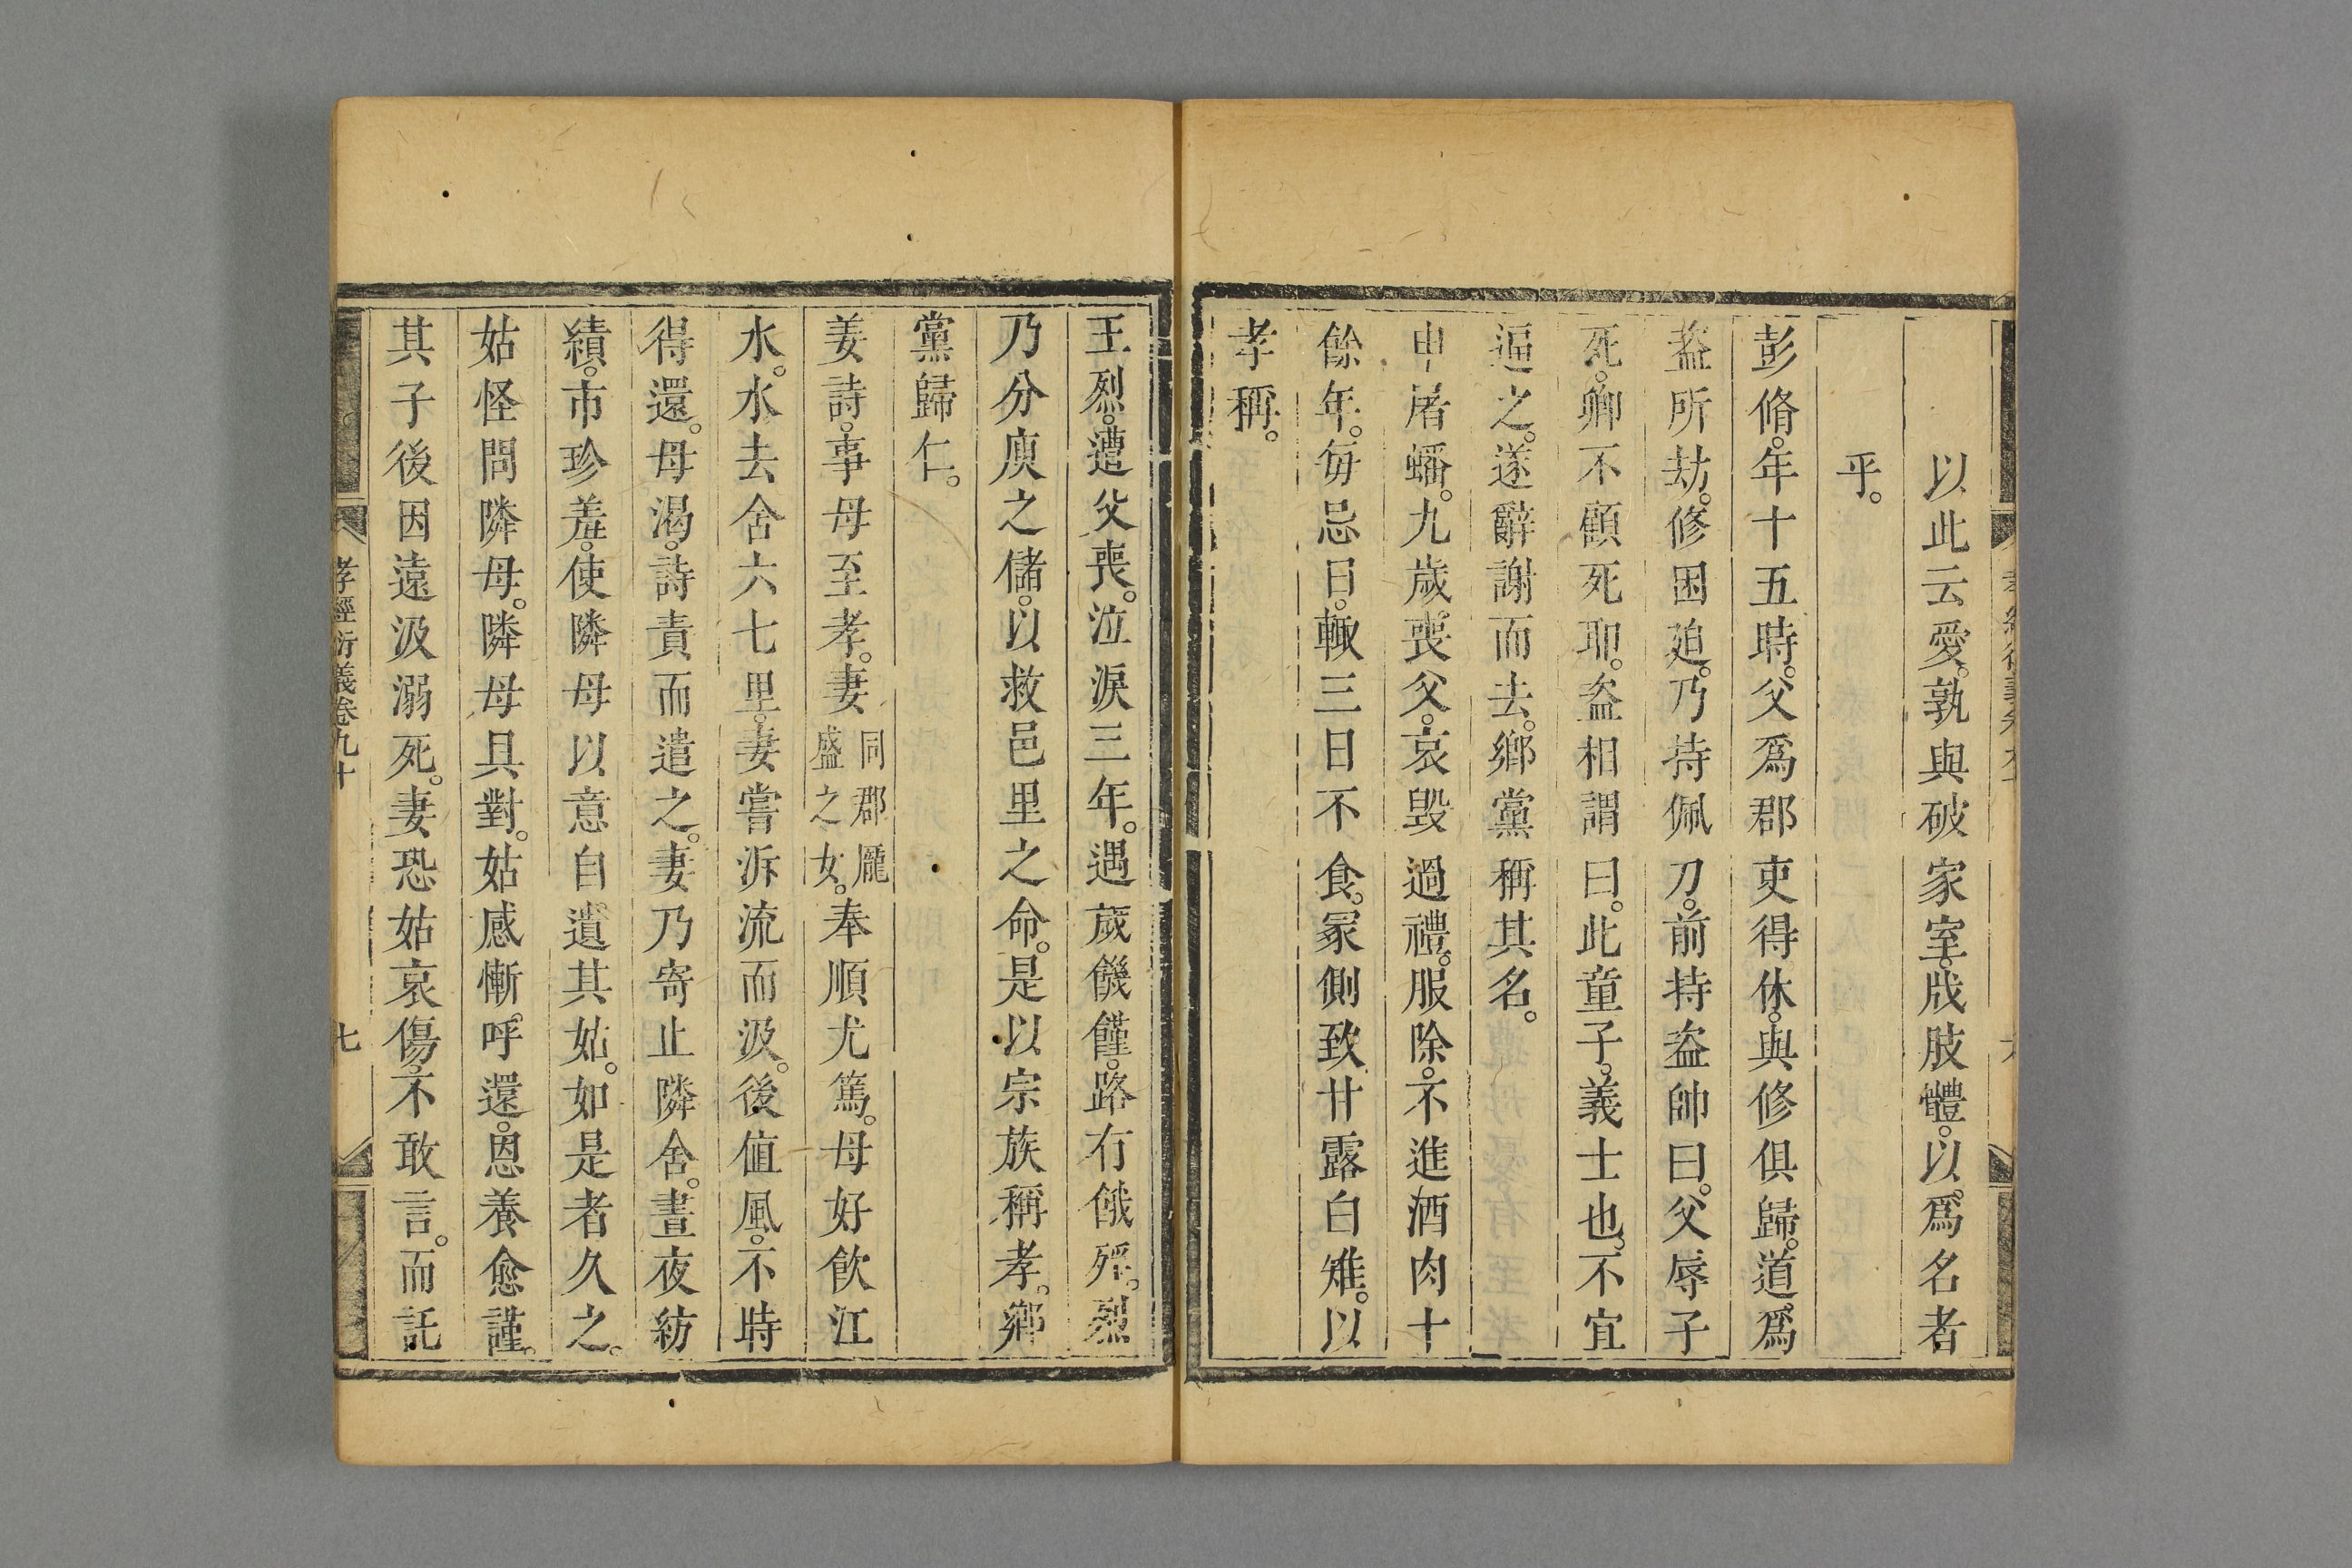 以此云愛。孰與破家室。戕肢體。以爲名者
乎。
彭脩。年十五時。父爲郡吏得休。與修俱歸。道爲
盗所劫。修困廹。乃持佩刀。前持盗帥曰。父辱子
死。卿不顧死耶。盗相謂曰。此童子。義士也。不宜
逼之。遂辭謝而去。鄉黨稱其名。
申屠蟠。九歲。喪父。哀毀過禮。服除。不進酒肉十
餘年。每忌日。輒三日不食。冡側致甘露白雉。以
孝稱。
王烈。遭父喪。泣淚三年。遇歲饑饉。路有餓殍。烈
乃分庾之儲。以救邑里之命。是以宗族稱孝。鄉
黨歸仁。
姜詩。事母至孝。妻同郡龐盛之女。奉順尤篤。母好飲江
水。水去舍六七里。妻嘗泝流而汲。後值風。不時
得還。母渴。詩責而遣之。妻乃寄止隣舍。晝夜紡
績。市珍羞。使隣母以意自遺其姑。如是者久之。
姑怪問隣母。隣母具對。姑感慚。呼還。恩養愈謹。
其子後因遠汲溺死。妻恐姑哀傷。不敢言。而託
孝經衍義卷九十
七